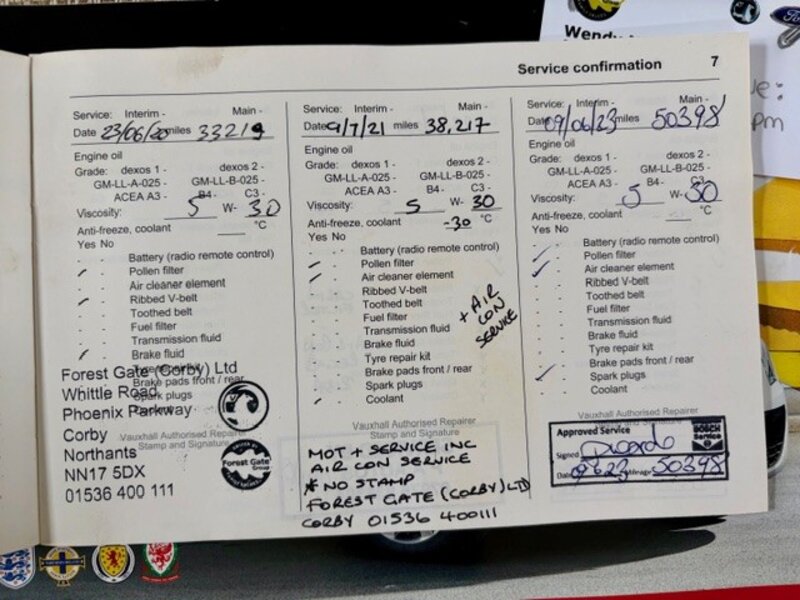 Wendy
Ford
pm
Service confirmation 7
Service: Interim - Main -
Date 23/06/20 miles 33219
Engine oil
Grade: dexos 1 - dexos 2 -
GM-LL-A-025 - GM-LL-B-025 -
ACEA A3 - B4- C3 -
Viscosity: 5 W- 30
Anti-freeze, coolant °C
Yes No
Battery (radio remote control)
Pollen filter
Air cleaner element
Ribbed V-belt
Toothed belt
Fuel filter
Transmission fluid
Brake fluid
Brake pads front / rear
Spark plugs
Vauxhall Authorised Repairer
Stamp and Signature
Forest Gate (Corby) Ltd
Whittle Road
Phoenix Parkway
Corby
Northants
NN17 5DX
01536 400 111
Forest Gate
Group
Service: Interim - Main -
Date 9/7/21 miles 38,217
Engine oil
Grade: dexos 1 - dexos 2 -
GM-LL-A-025 - GM-LL-B-025 -
ACEA A3 - B4- C3 -
Viscosity: 5 W- 30
Anti-freeze, coolant -30 °C
Yes No
Battery (radio remote control)
Pollen filter
Air cleaner element
Ribbed V-belt
Toothed belt
Fuel filter
Transmission fluid
Brake fluid
Tyre repair kit
Brake pads front / rear
Spark plugs
Coolant
+ AIR
CON
SERVICE
Vauxhall Authorised Repairer
Stamp and Signature
MOT + SERVICE INC
AIR CON SERVICE
* NO STAMP
FOREST GATE (CORBY) LTD
CORBY 01536 400111
Service: Interim - Main -
Date 09/06/23 miles 50398
Engine oil
Grade: dexos 1 - dexos 2 -
GM-LL-A-025 - GM-LL-B-025 -
ACEA A3 - B4- C3 -
Viscosity: 5 W- 30
Anti-freeze, coolant °C
Yes No
Battery (radio remote control)
Pollen filter
Air cleaner element
Ribbed V-belt
Toothed belt
Fuel filter
Transmission fluid
Brake fluid
Tyre repair kit
Brake pads front / rear
Spark plugs
Coolant
Vauxhall Authorised Repairer
Approved Service
BOSCH
Service
Signed
Date 9623 Mileage 50398